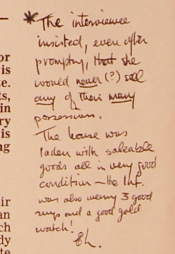 * The interviewee
insisted, even after
prompting, that she
would never (?) sell
any of their many
possessions.
The house was
laden with saleable
goods all in very good
condition – the Inf.
was also wearing 3 good
rings and a good gold
watch!
or
is
e.
ts,
in
ry
is
ng
eir
an
ch
dy
te